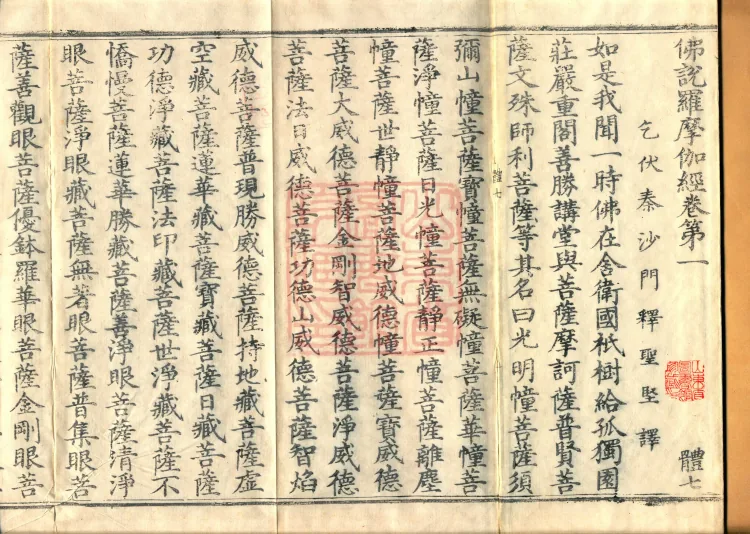 佛說羅摩伽經卷第一
體七
乞伏秦沙門釋聖堅譯
如是我聞一時佛在舍衛國祇樹給孤獨園
莊嚴重閣善勝講堂與菩薩摩訶薩普賢菩
薩文殊師利菩薩等其名曰光明幢菩薩須
體七
彌山幢菩薩寶幢菩薩無礙幢菩薩華幢菩
薩淨幢菩薩日光幢菩薩靜正幢菩薩離塵
幢菩薩世靜幢菩薩地威德幢菩薩寶威德
菩薩大威德菩薩金剛智威德菩薩淨威德
菩薩法日威德菩薩功德山威德菩薩智焰
威德菩薩普現勝威德菩薩持地藏菩薩虛
空藏菩薩蓮華藏菩薩寶藏菩薩日藏菩薩
功德淨藏菩薩法印藏菩薩世淨藏菩薩不
憍慢菩薩蓮華勝藏菩薩善淨眼菩薩清淨
眼菩薩淨眼藏菩薩無著眼菩薩普集眼菩
薩善觀眼菩薩優鉢羅華眼菩薩金剛眼菩